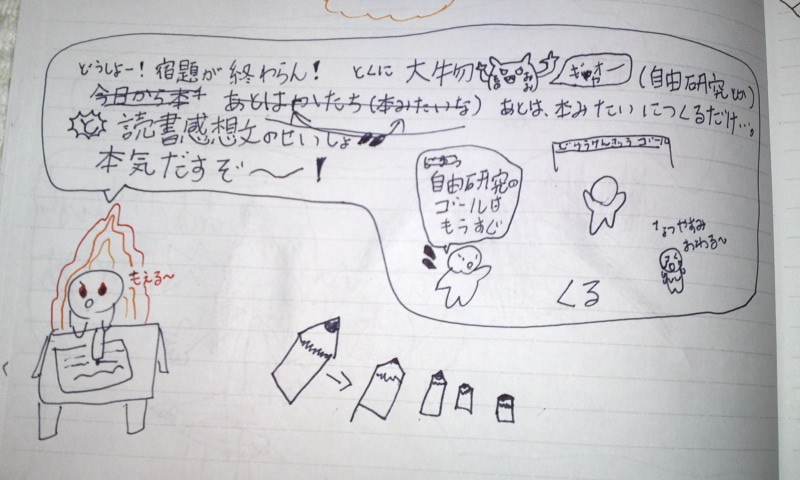 どうしよー!宿題が終わらん!とくに大物
ギャオー
(自由研究とか)
今日から本キ あとはかたち(本みたいな) あとは、本みたいにつくるだけ…。
読書感想文のせいしょ
本気だすぞ〜!
自由研究の
ゴールは
もうすぐ
じゆうけんきゅうゴール
なつやすみ
おわる〜
くる
もえる〜